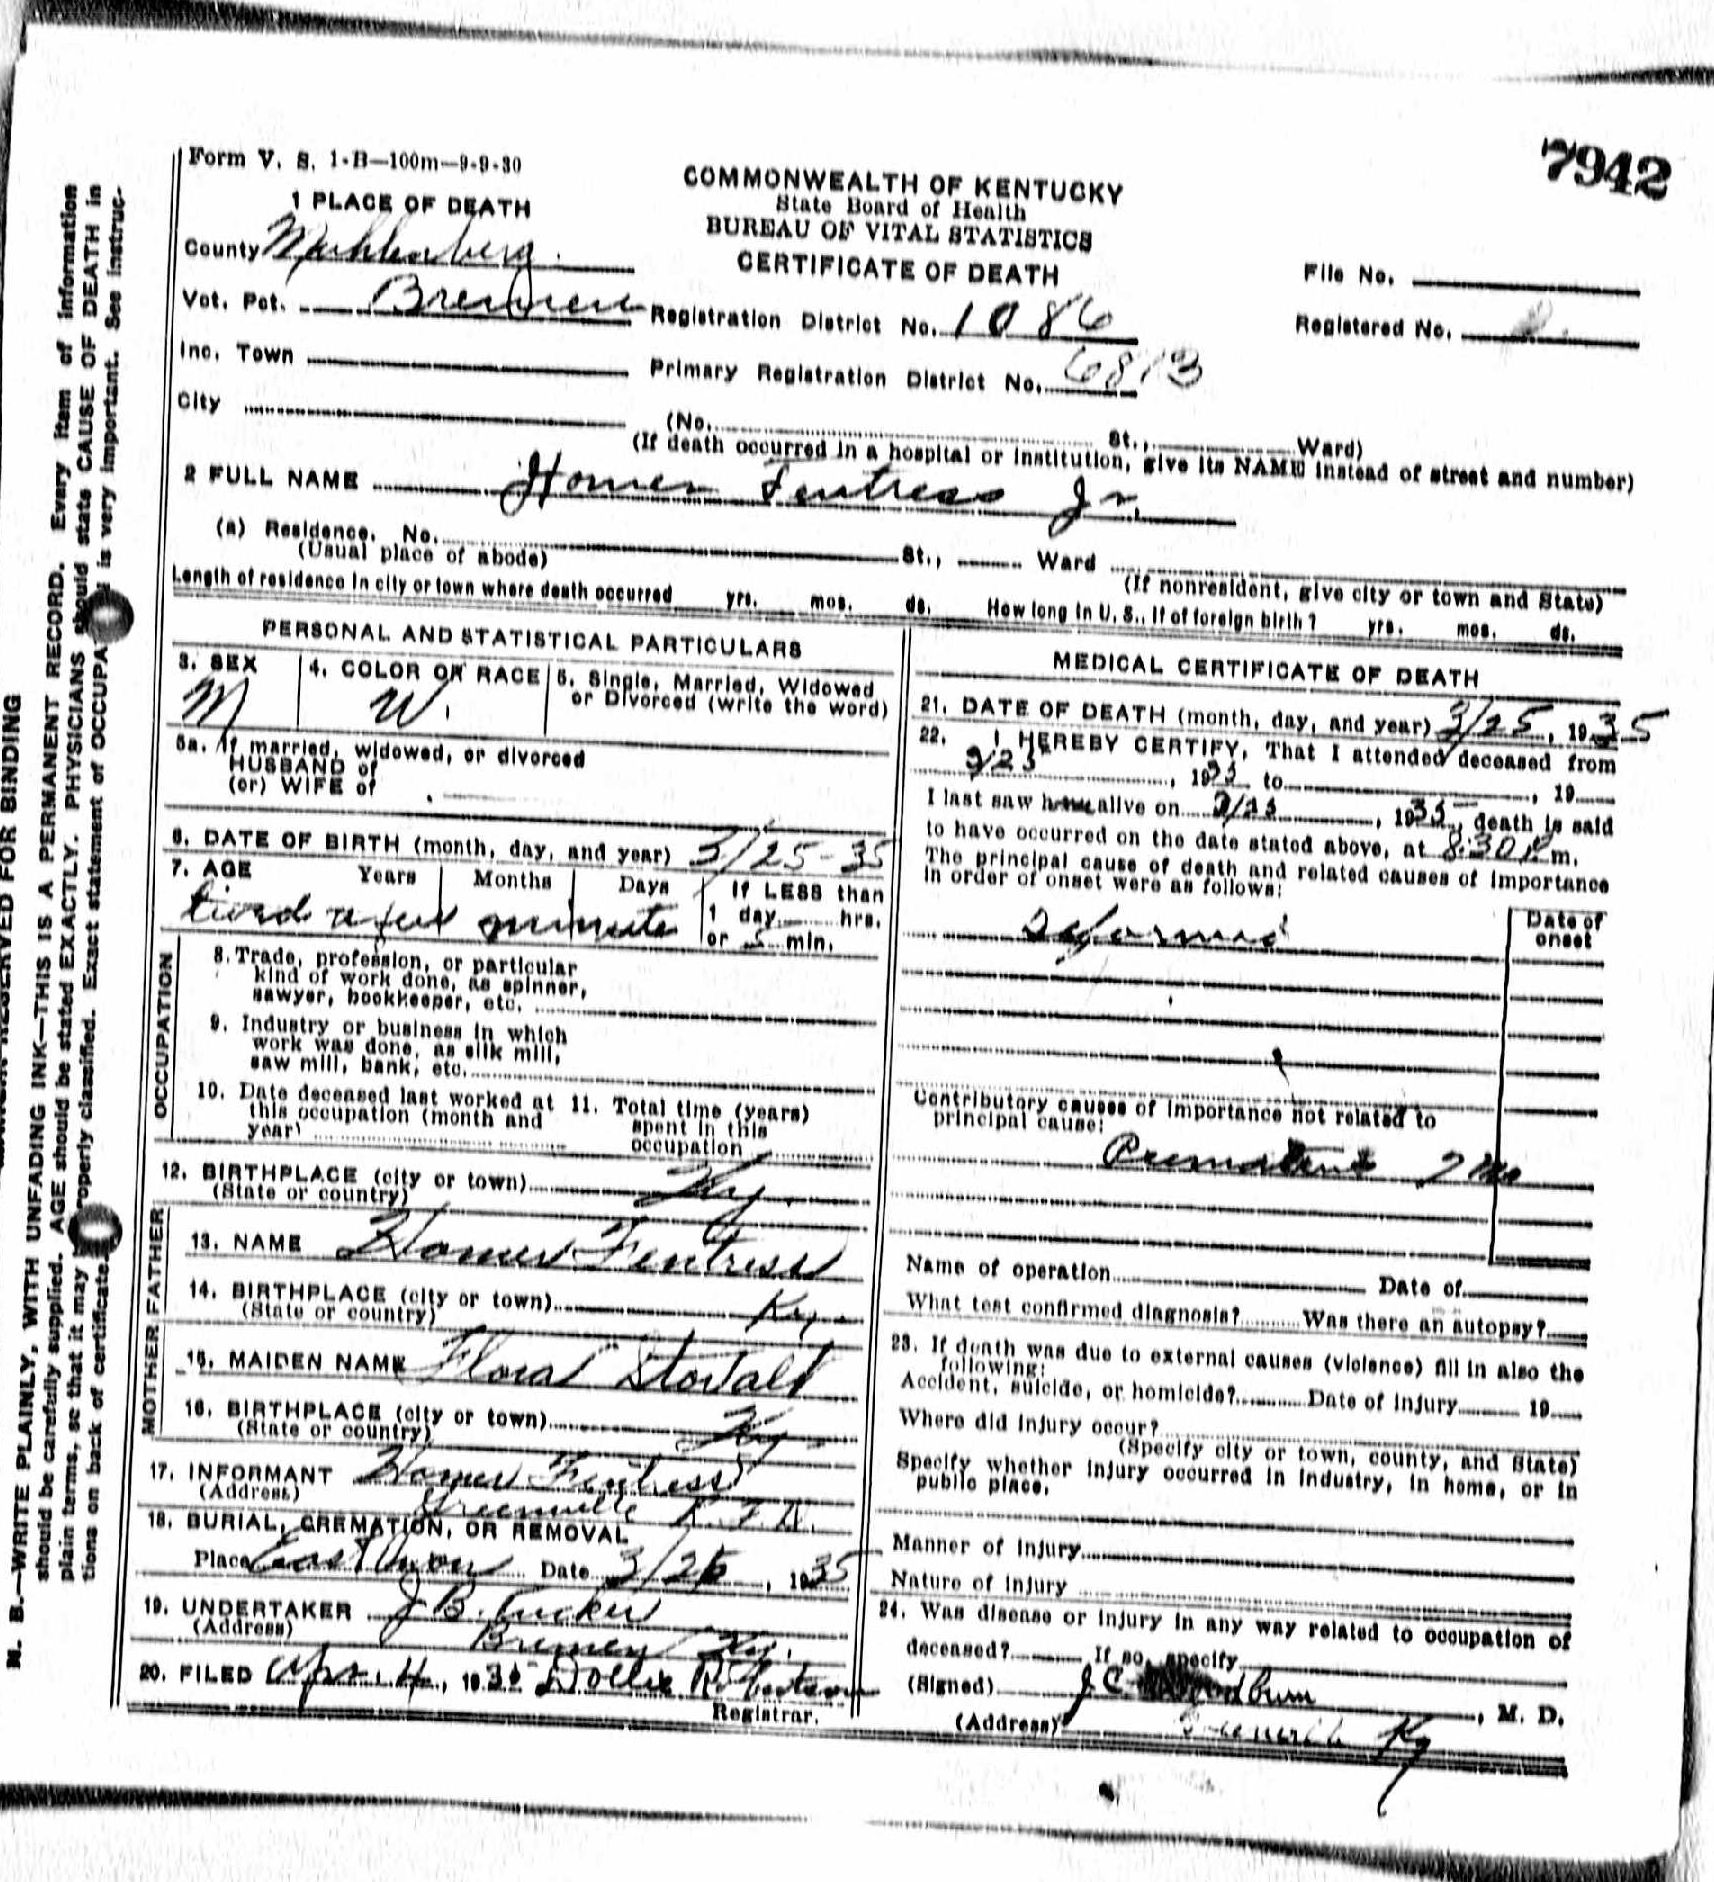 7942
Form V. S. 1-B—100m—9-9-30
COMMONWEALTH OF KENTUCKY
State Board of Health
BUREAU OF VITAL STATISTICS
CERTIFICATE OF DEATH
1 PLACE OF DEATH
County Muhlenberg
Vot. Pct. Bremen
Inc. Town
City
Registration District No. 1086
Primary Registration District No. 6813
File No.
Registered No.
(No. St., Ward)
(If death occurred in a hospital or institution, give its NAME instead of street and number)
2 FULL NAME Homer Fentress Jr.
(a) Residence. No. St., Ward
(Usual place of abode) (If nonresident, give city or town and State)
Length of residence in city or town where death occurred yrs. mos. ds. How long in U. S., if of foreign birth? yrs. mos. ds.
PERSONAL AND STATISTICAL PARTICULARS
3. SEX M
4. COLOR OR RACE W.
5. Single, Married, Widowed
or Divorced (write the word)
5a. If married, widowed, or divorced
HUSBAND of
(or) WIFE of
6. DATE OF BIRTH (month, day, and year) 3/25-35
7. AGE Years Months Days If LESS than
1 day hrs.
or 5 min.
lived a few minute
OCCUPATION
8. Trade, profession, or particular
kind of work done, as spinner,
sawyer, bookkeeper, etc.
9. Industry or business in which
work was done, as silk mill,
saw mill, bank, etc.
10. Date deceased last worked at
this occupation (month and
year)
11. Total time (years)
spent in this
occupation
12. BIRTHPLACE (city or town) Ky.
(State or country)
FATHER
13. NAME Homer Fentress
14. BIRTHPLACE (city or town) Ky
(State or country)
MOTHER
15. MAIDEN NAME Floral Stovall
16. BIRTHPLACE (city or town) Ky
(State or country)
17. INFORMANT Homer Fentress
(Address) Greenville R.F.D.
18. BURIAL, CREMATION, OR REMOVAL
Place East Union Date 3/26, 1935
19. UNDERTAKER J B. Tucker
(Address) Bremen Ky.
20. FILED Apr. 4, 1935 Dollie Robertson
Registrar.
MEDICAL CERTIFICATE OF DEATH
21. DATE OF DEATH (month, day, and year) 3/25, 1935
22. I HEREBY CERTIFY, That I attended deceased from
3/25, 1935 to , 19
I last saw him alive on 3/25, 1935, death is said
to have occurred on the date stated above, at 8:30 P. m.
The principal cause of death and related causes of importance
in order of onset were as follows:
Date of
onset
Deformed
Contributory causes of importance not related to
principal cause:
Premature 7 Mo
Name of operation Date of
What test confirmed diagnosis? Was there an autopsy?
23. If death was due to external causes (violence) fill in also the
following:
Accident, suicide, or homicide? Date of injury 19
Where did injury occur?
(Specify city or town, county, and State)
Specify whether injury occurred in industry, in home, or in
public place.
Manner of injury
Nature of injury
24. Was disease or injury in any way related to occupation of
deceased? If so, specify
(Signed) J C Woodburn, M. D.
(Address) Greenville Ky
N. B.—WRITE PLAINLY, WITH UNFADING INK—THIS IS A PERMANENT RECORD. Every item of information
should be carefully supplied. AGE should be stated EXACTLY. PHYSICIANS should state CAUSE OF DEATH in
plain terms, so that it may properly classified. Exact statement of is very important. See instruc-
tions on back of certificate.
RESERVED FOR BINDING